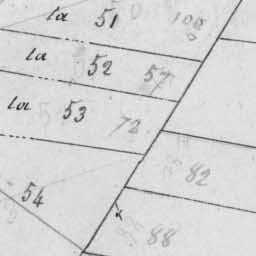 la 51 100
la 52 57
la 53 72
82
54
88